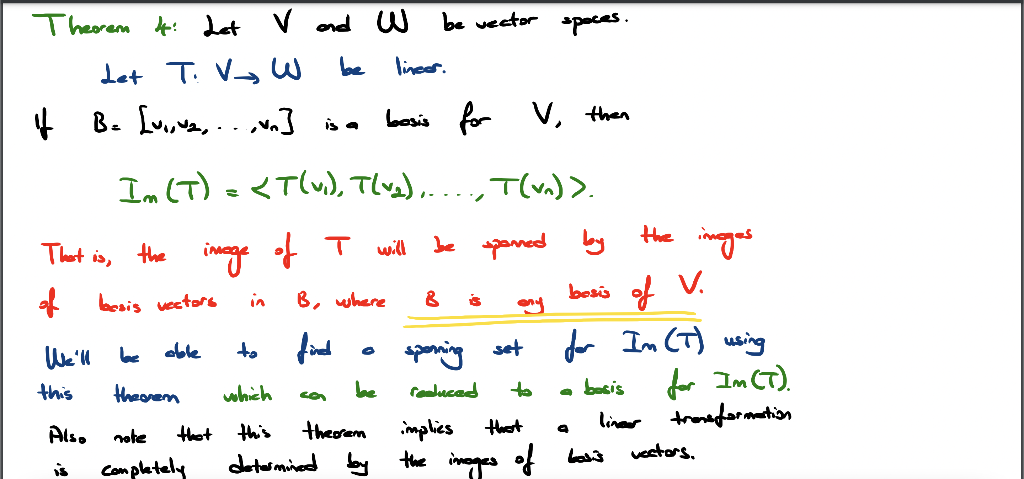 Theorem 4: Let V and W be vector spaces.
Let T: V→W be linear.
If B= [v₁,v₂, . . . ,vₙ] is a basis for V, then
Im(T) = <T(v₁), T(v₂), . . . . , T(vₙ)>.
That is, the image of T will be spanned by the images
of basis vectors in B, where B is any basis of V.
We'll be able to find a spanning set for Im(T) using
this theorem which can be reduced to a basis for Im(T).
Also note that this theorem implies that a linear transformation
is completely determined by the images of basis vectors.